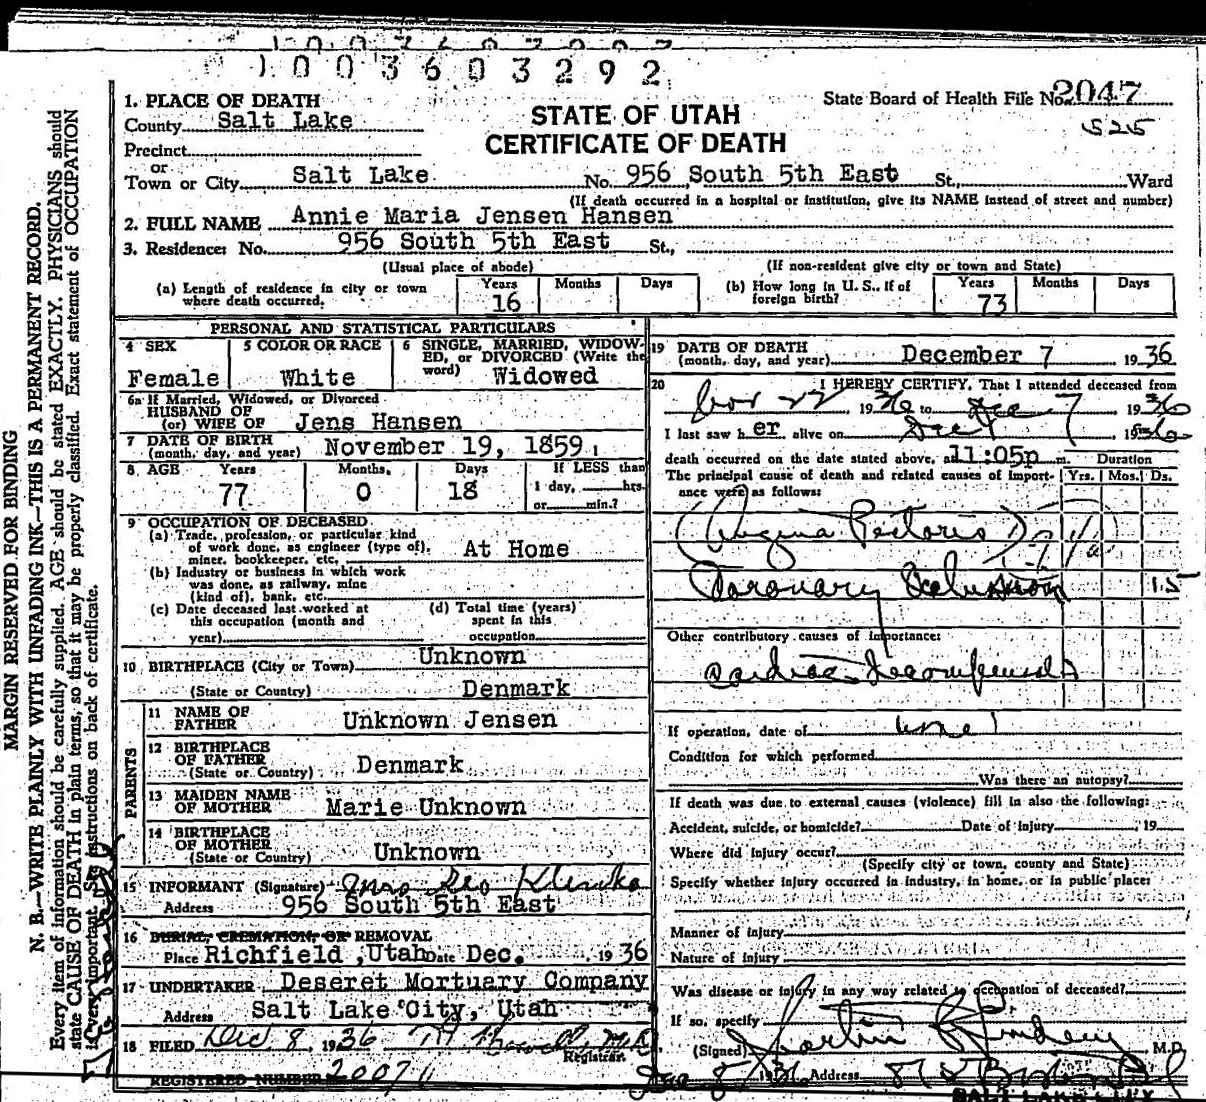 1003603292
State Board of Health File No. 2047
525
STATE OF UTAH
CERTIFICATE OF DEATH
1. PLACE OF DEATH
County Salt Lake
Precinct
or
Town or City Salt Lake No. 956 South 5th East St., Ward
(If death occurred in a hospital or institution, give its NAME instead of street and number)
2. FULL NAME Annie Maria Jensen Hansen
3. Residence: No. 956 South 5th East St.,
(Usual place of abode) (If non-resident give city or town and State)
(a) Length of residence in city or town where death occurred. Years 16 Months Days
(b) How long in U. S., if of foreign birth? Years 73 Months Days
PERSONAL AND STATISTICAL PARTICULARS
4 SEX Female
5 COLOR OR RACE White
6 SINGLE, MARRIED, WIDOWED, or DIVORCED (Write the word) Widowed
6a If Married, Widowed, or Divorced
HUSBAND OF
(or) WIFE OF Jens Hansen
7 DATE OF BIRTH
(month, day, and year) November 19, 1859
8 AGE Years 77 Months, 0 Days 18 If LESS than
1 day, hrs.
or min.?
9 OCCUPATION OF DECEASED
(a) Trade, profession, or particular kind
of work done, as engineer (type of),
miner, bookkeeper, etc. At Home
(b) Industry or business in which work
was done, as railway, mine
(kind of), bank, etc.
(c) Date deceased last worked at
this occupation (month and
year)
(d) Total time (years)
spent in this
occupation
10 BIRTHPLACE (City or Town) Unknown
(State or Country) Denmark
PARENTS
11 NAME OF
FATHER Unknown Jensen
12 BIRTHPLACE
OF FATHER
(State or Country) Denmark
13 MAIDEN NAME
OF MOTHER Marie Unknown
14 BIRTHPLACE
OF MOTHER
(State or Country) Unknown
15 INFORMANT (Signature) Mrs Geo
Address 956 South 5th East
16 BURIAL, CREMATION, OR REMOVAL
Place Richfield, Utah Date Dec. 1936
17 UNDERTAKER Deseret Mortuary Company
Address Salt Lake City, Utah
18 FILED Dec 8, 1936
Registrar.
REGISTERED NUMBER 2007
19 DATE OF DEATH
(month, day, and year) December 7 1936
20 I HEREBY CERTIFY, That I attended deceased from
Nov 22 1936 to Dec 7 1936
I last saw her alive on Dec 7 1936
death occurred on the date stated above, at 11:05p m.
The principal cause of death and related causes of importance were as follows:
Duration
Yrs. Mos. Ds.
(Angina Pectoris)
Coronary Occlusion 15
Other contributory causes of importance:
Cardiac Decompensation
If operation, date of none
Condition for which performed
Was there an autopsy?
If death was due to external causes (violence) fill in also the following:
Accident, suicide, or homicide? Date of injury , 19
Where did injury occur?
(Specify city or town, county and State)
Specify whether injury occurred in industry, in home, or in public place:
Manner of injury
Nature of injury
Was disease or injury in any way related to occupation of deceased?
If so, specify
(Signed) M.D.
1936 Address
SALT LAKE CITY
MARGIN RESERVED FOR BINDING
N. B.—WRITE PLAINLY WITH UNFADING INK—THIS IS A PERMANENT RECORD.
Every item of information should be carefully supplied. AGE should be stated EXACTLY. PHYSICIANS should
state CAUSE OF DEATH in plain terms, so that it may be properly classified. Exact statement of OCCUPATION
is very important. See instructions on back of certificate.